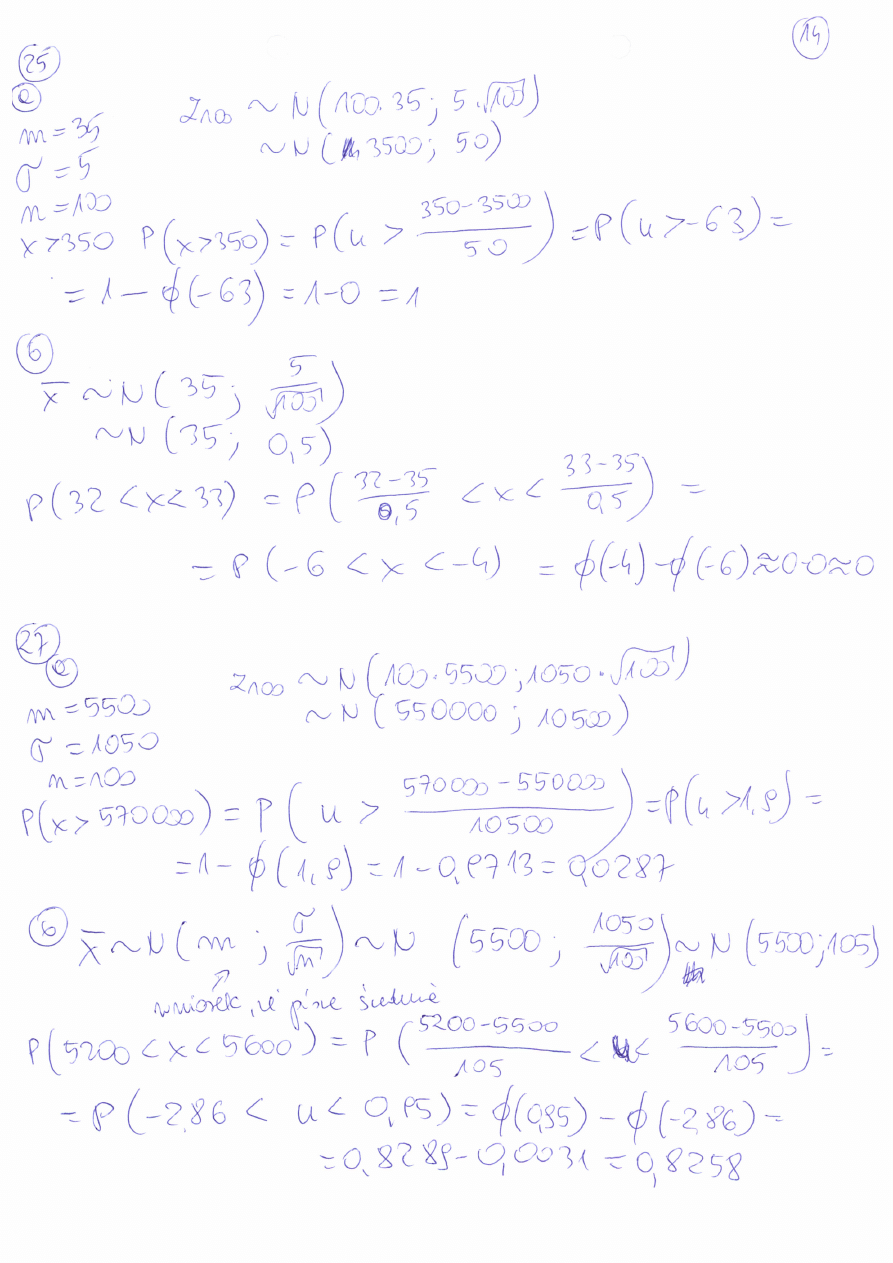 14
25
a
m = 35
σ = 5
n = 100
x > 350
Z100 ~ N(100·35; 5·√100)
~ N(3500; 50)
P(x>350) = P(u > (350-3500)/50) = P(u > -63) =
= 1 - ϕ(-63) = 1-0 = 1
б
x̄ ~ N(35; 5/√100)
~ N(35; 0,5)
P(32 < x < 33) = P((32-35)/0,5 < x < (33-35)/0,5) =
= P(-6 < x < -4) = ϕ(-4) - ϕ(-6) ≈ 0-0 ≈ 0
27
a
m = 5500
σ = 1050
n = 100
Z100 ~ N(100·5500; 1050·√100)
~ N(550000; 10500)
P(x > 570000) = P(u > (570000-550000)/10500) = P(u > 1,9) =
= 1 - ϕ(1,9) = 1 - 0,9713 = 0,0287
б
x̄ ~ N(m; σ/√n) ~ N(5500; 1050/√100) ~ N(5500; 105)
wniosek, że pisze średnie
P(5200 < x < 5600) = P((5200-5500)/105 < u < (5600-5500)/105) =
= P(-2,86 < u < 0,95) = ϕ(0,95) - ϕ(-2,86) =
= 0,8289 - 0,0031 = 0,8258